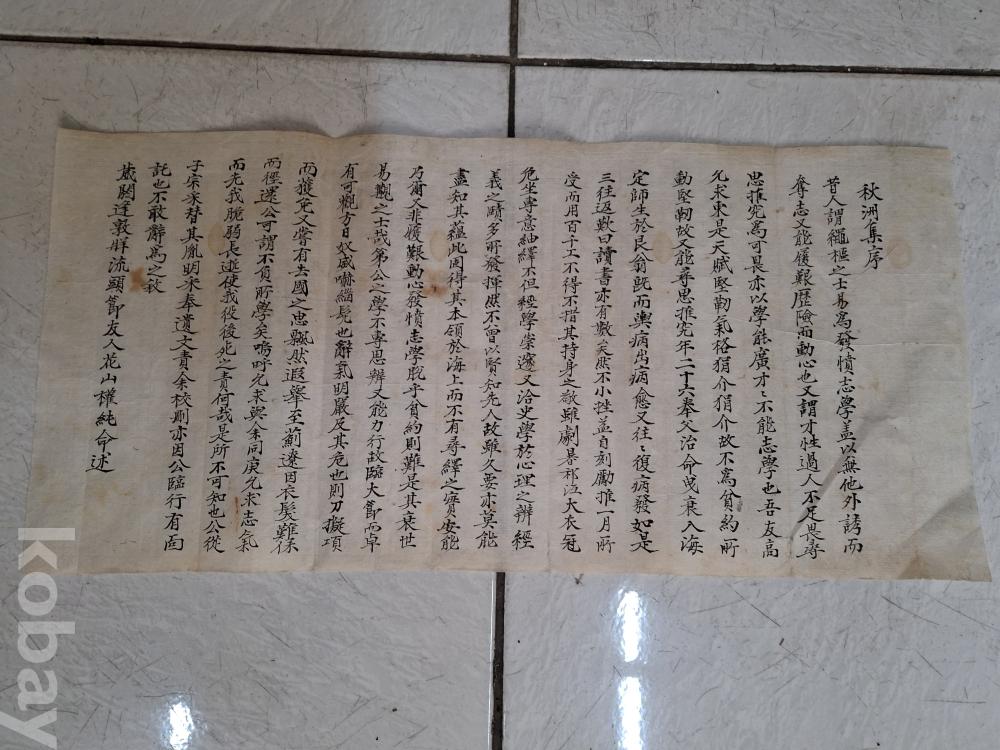 秋洲集序
昔人謂繩樞之士易爲發憤志學蓋以無他外誘而
奪志又能履艱歷險而動心也又謂才性過人不足畏尋
思推究爲可畏亦以學能廣才才不能志學也吾友高
允求東是天賦堅勒氣格狷介狷介故不爲貧約所
動堅勒故又能尋思推究年二十六奉父治命曳衰入海
定師生於艮翁旣而輿病出病愈又往往復病發如是
三往返歎曰讀書亦有數矣然不小挫益自刻勵推一月所
受而用百千工不得不措其持身之敬雖劇暑祁沍大衣冠
危坐專意紬繹不但經學崇邃又洽史學於心理之辨經
義之賾多所發揮然不曾以賢知先人故雖久要亦莫能
盡知其蘊此固得其本領於海上而不有尋繹之實安能
乃爾又非履艱動心發憤志學脫乎貧約則難是其衰世
易觀之士哉第公之學不專思辨又能力行故臨大節而卓
有可觀方日奴威嚇緇髡也辭氣明嚴及其危也則刀擬項
而獲免又嘗有去國之忠飄然遐擧至薊遼因衣髮難保
而徑還公可謂不負所學矣嗚呼允求與余同庚允求志氣
而先我脆弱長逝使我役後死之責何哉是所不可知也公從
子宗求替其胤明求奉遺文責余校刪亦因公臨行有面
託也不敢辭爲之敍
歲閼逢敦牂流頭節友人花山權純命述
kobay